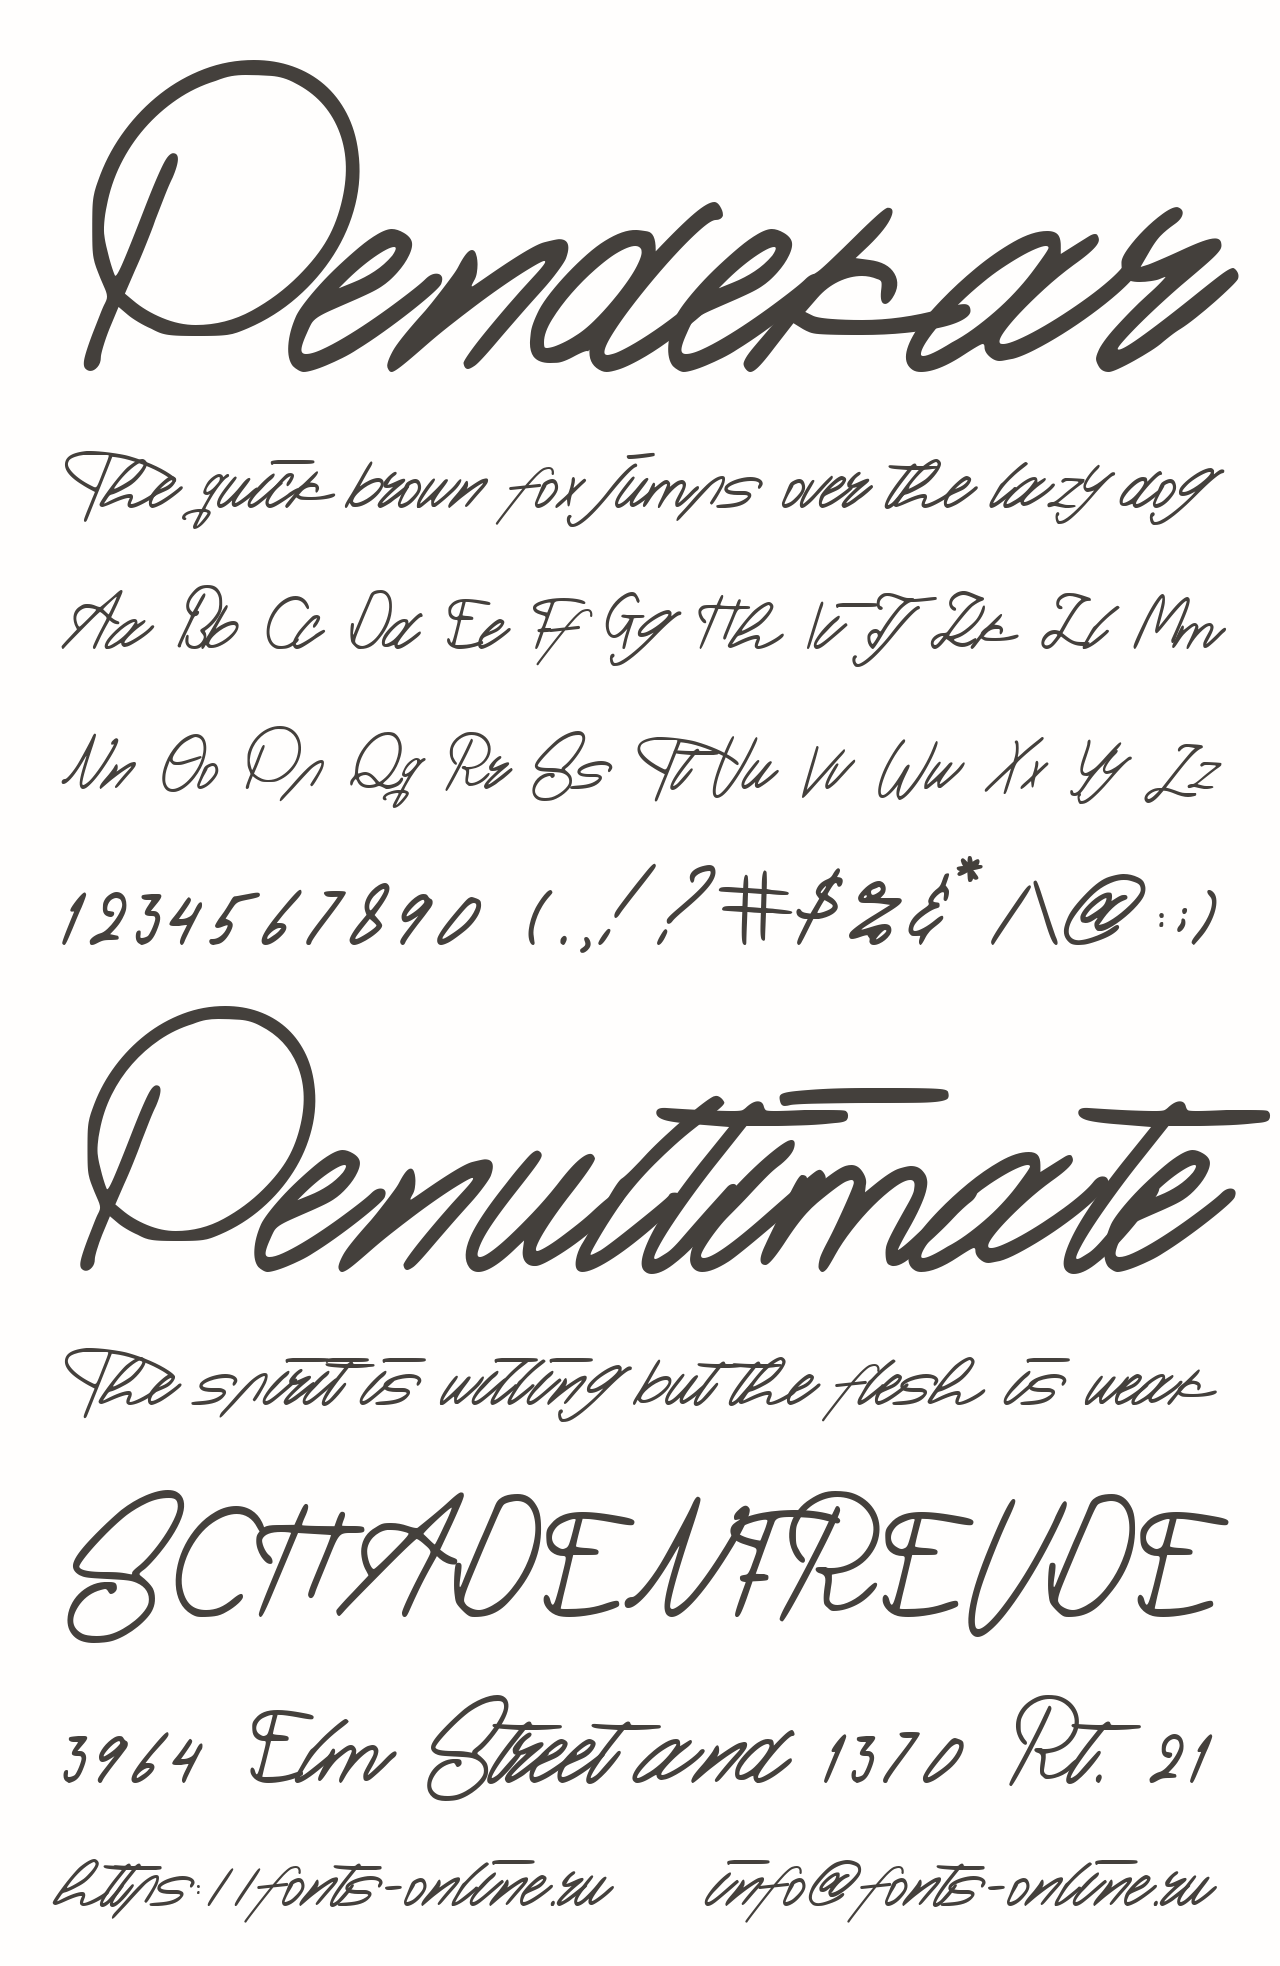 Pendekar
The quick brown fox jumps over the lazy dog
Aa Bb Cc Dd Ee Ff Gg Hh Ii Jj Kk Ll Mm
Nn Oo Pp Qq Rr Ss Tt Uu Vv Ww Xx Yy Zz
1 2 3 4 5 6 7 8 9 0 (.,! ? # $ % & * / \ @ : ; )
Penultimate
The spirit is willing but the flesh is weak
SCHADENFREUDE
3964 Elm Street and 1370 Rt. 21
https://fonts-online.ru info@fonts-online.ru